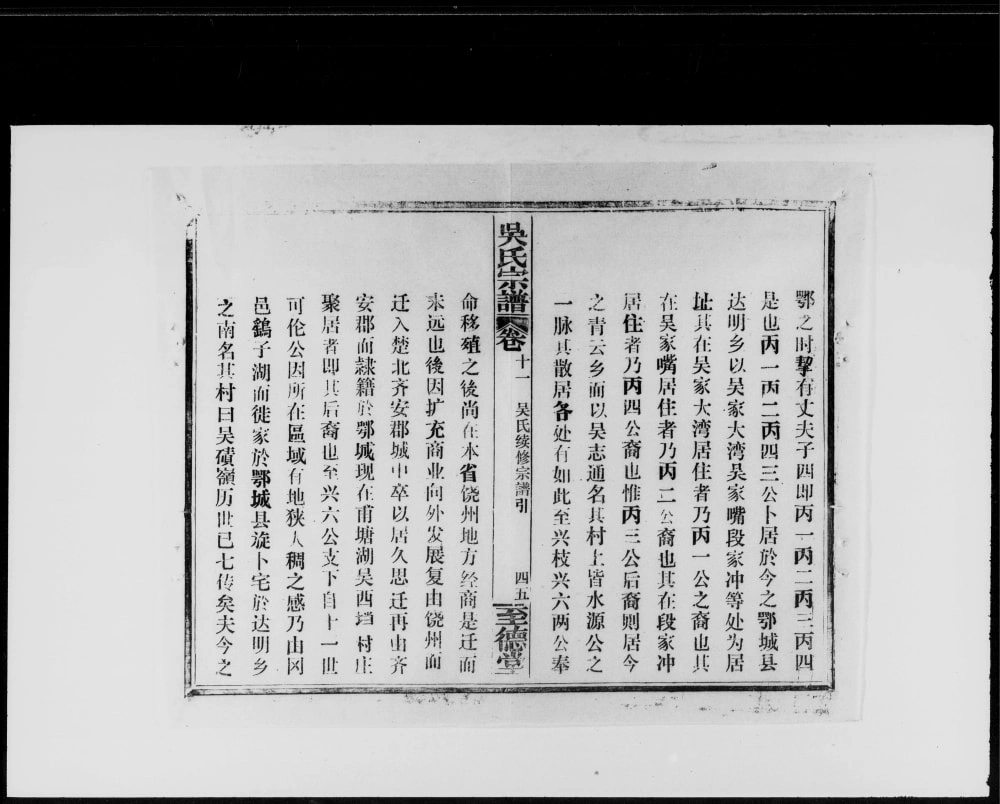 鄂之时挈有丈夫子四即丙一丙二丙三丙四
是也丙一丙二丙四三公卜居於今之鄂城县
达明乡以吴家大湾吴家嘴段家冲等处为居
址其在吴家大湾居住者乃丙一公之裔也其
在吴家嘴居住者乃丙二公裔也其在段家冲
居住者乃丙四公裔也惟丙三公后裔则居今
之青云乡而以吴志通名其村上皆水源公之
一脉其散居各处有如此至兴枝兴六两公奉
吳氏宗譜 卷十一 吴氏续修宗譜引 四五 至德堂
命移殖之後尚在本省饶州地方经商是迁而
来远也後因扩充商业向外发展复由饶州而
迁入楚北齐安郡城中卒以居久思迁再由齐
安郡而隷籍於鄂城现在甫塘湖吴西垱村庄
聚居者即其后裔也至兴六公支下自十一世
可伦公因所在區域有地狭人稠之感乃由冈
邑鷂子湖而徙家於鄂城县旋卜宅於达明乡
之南名其村曰吴磧嶺历世已七传矣夫今之